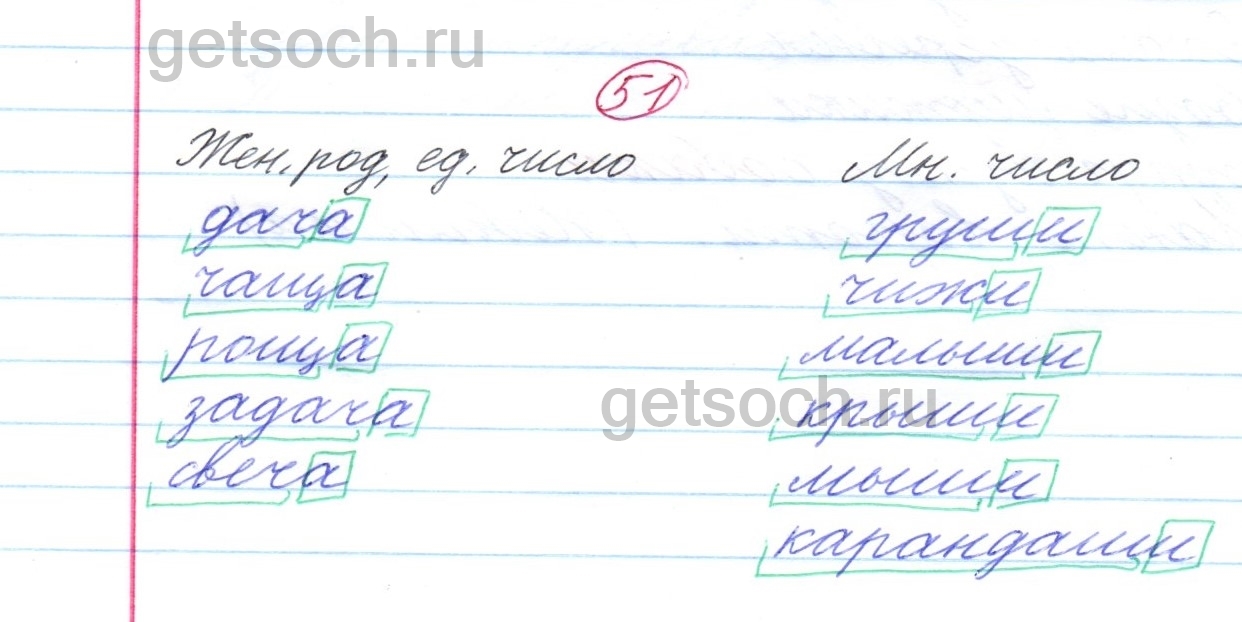 getsoch.ru
51
Жен. род, ед. число Мн. число
дача груши
чаща чижи
роща малыши
getsoch.ru
задача крыши
свеча мыши
карандаши